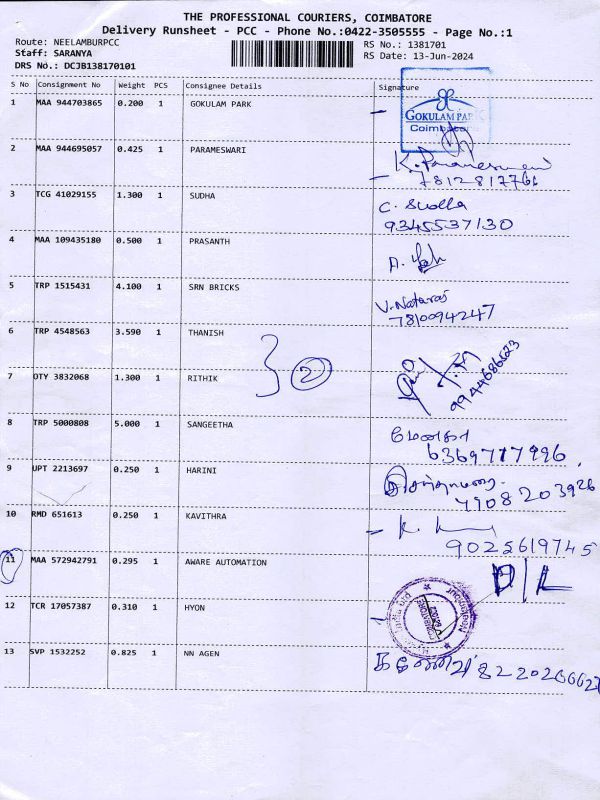 THE PROFESSIONAL COURIERS, COIMBATORE
Delivery Runsheet - PCC - Phone No.:0422-3505555 - Page No.:1
Route: NEELAMBURPCC
Staff: SARANYA
DRS No.: DCJB138170101
RS No.: 1381701
RS Date: 13-Jun-2024
S No Consignment No Weight PCS Consignee Details Signature
1 MAA 944703865 0.200 1 GOKULAM PARK
GOKULAM PARK
Coimbatore
2 MAA 944695057 0.425 1 PARAMESWARI
K. Parameswari
7812817761
3 TCG 41029155 1.300 1 SUDHA C. Sudha
9345537130
4 MAA 109435180 0.500 1 PRASANTH
5 TRP 1515431 4.100 1 SRN BRICKS V. Nataraj
7810094247
6 TRP 4548563 3.590 1 THANISH
2
9944686523
7 OTY 3832068 1.300 1 RITHIK
8 TRP 5000808 5.000 1 SANGEETHA மேனகா
6369717996
9 UPT 2213697 0.250 1 HARINI
7908203926
10 RMD 651613 0.250 1 KAVITHRA
9025619745
11 MAA 572942791 0.295 1 AWARE AUTOMATION D/L
12 TCR 17057387 0.310 1 HYON
COIMBATORE
13 SVP 1532252 0.825 1 NN AGEN